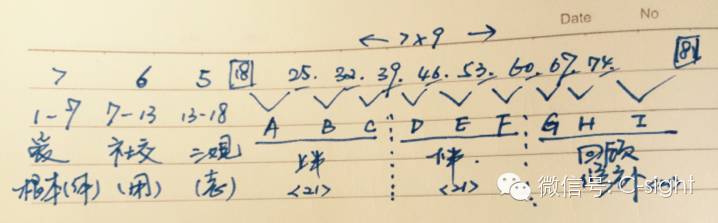 Date No
← 7×9 →
7 6 5 18 25. 32. 39. 46. 53. 60. 67. 74. 81
1-7 7-13 13-18 A B C D E F G H I
爱 社交 三观 上半 下半. 回顾
根本(体) (用) (志) <21> <21>
微信号: C-sight